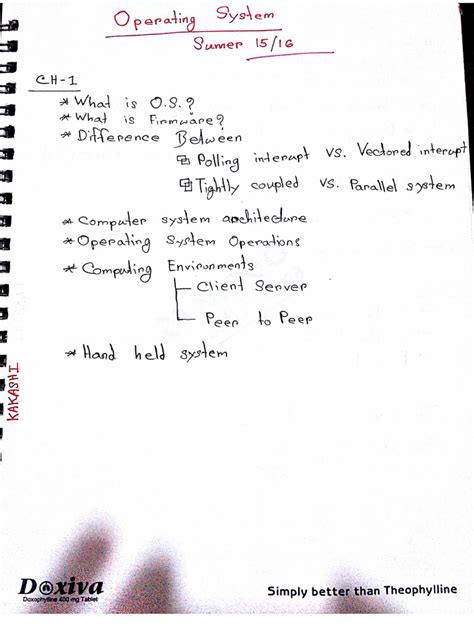 Operating System
Sumer 15/16
CH-1
* What is O.S.?
* What is Firmware?
* Difference Between
Polling interupt vs. Vectored interupt
Tightly coupled vs. Parallel system
* Computer system architecture
* Operating System Operations
* Computing Environments
Client Server
Peer to Peer
* Hand held system
KAKASHI
Doxiva
Doxophylline 400 mg Tablet
Simply better than Theophylline